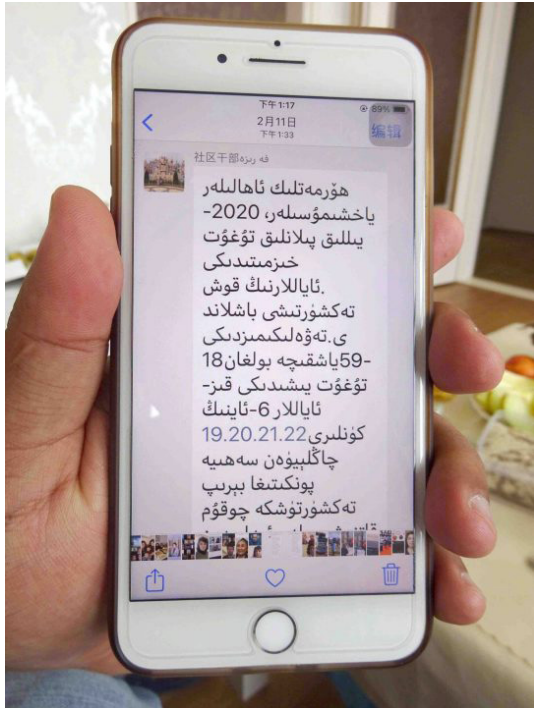 下午1:17
89%
2月11日
下午1:33
编辑
社区干部فە رىزە
ھۆرمەتلىك ئاھالىلەر
ياخشىمۇسىلەر، 2020-
يىللىق پىلانلىق تۇغۇت
خىزمىتىدىكى
.ئاياللارنىڭ قوش
تەكشۈرتىشى باشلاند
ى.تەۋەلىكىمىزدىكى
18-59ياشقىچە بولغان
تۇغۇت يىشىدىكى قىز-
ئاياللار 6-ئاينىڭ
كۈنلىرى19.20.21.22
چاڭلېيۈەن سەھىيە
پونكىتىغا بېرىپ
تەكشۈرتۈشكە چوقۇم